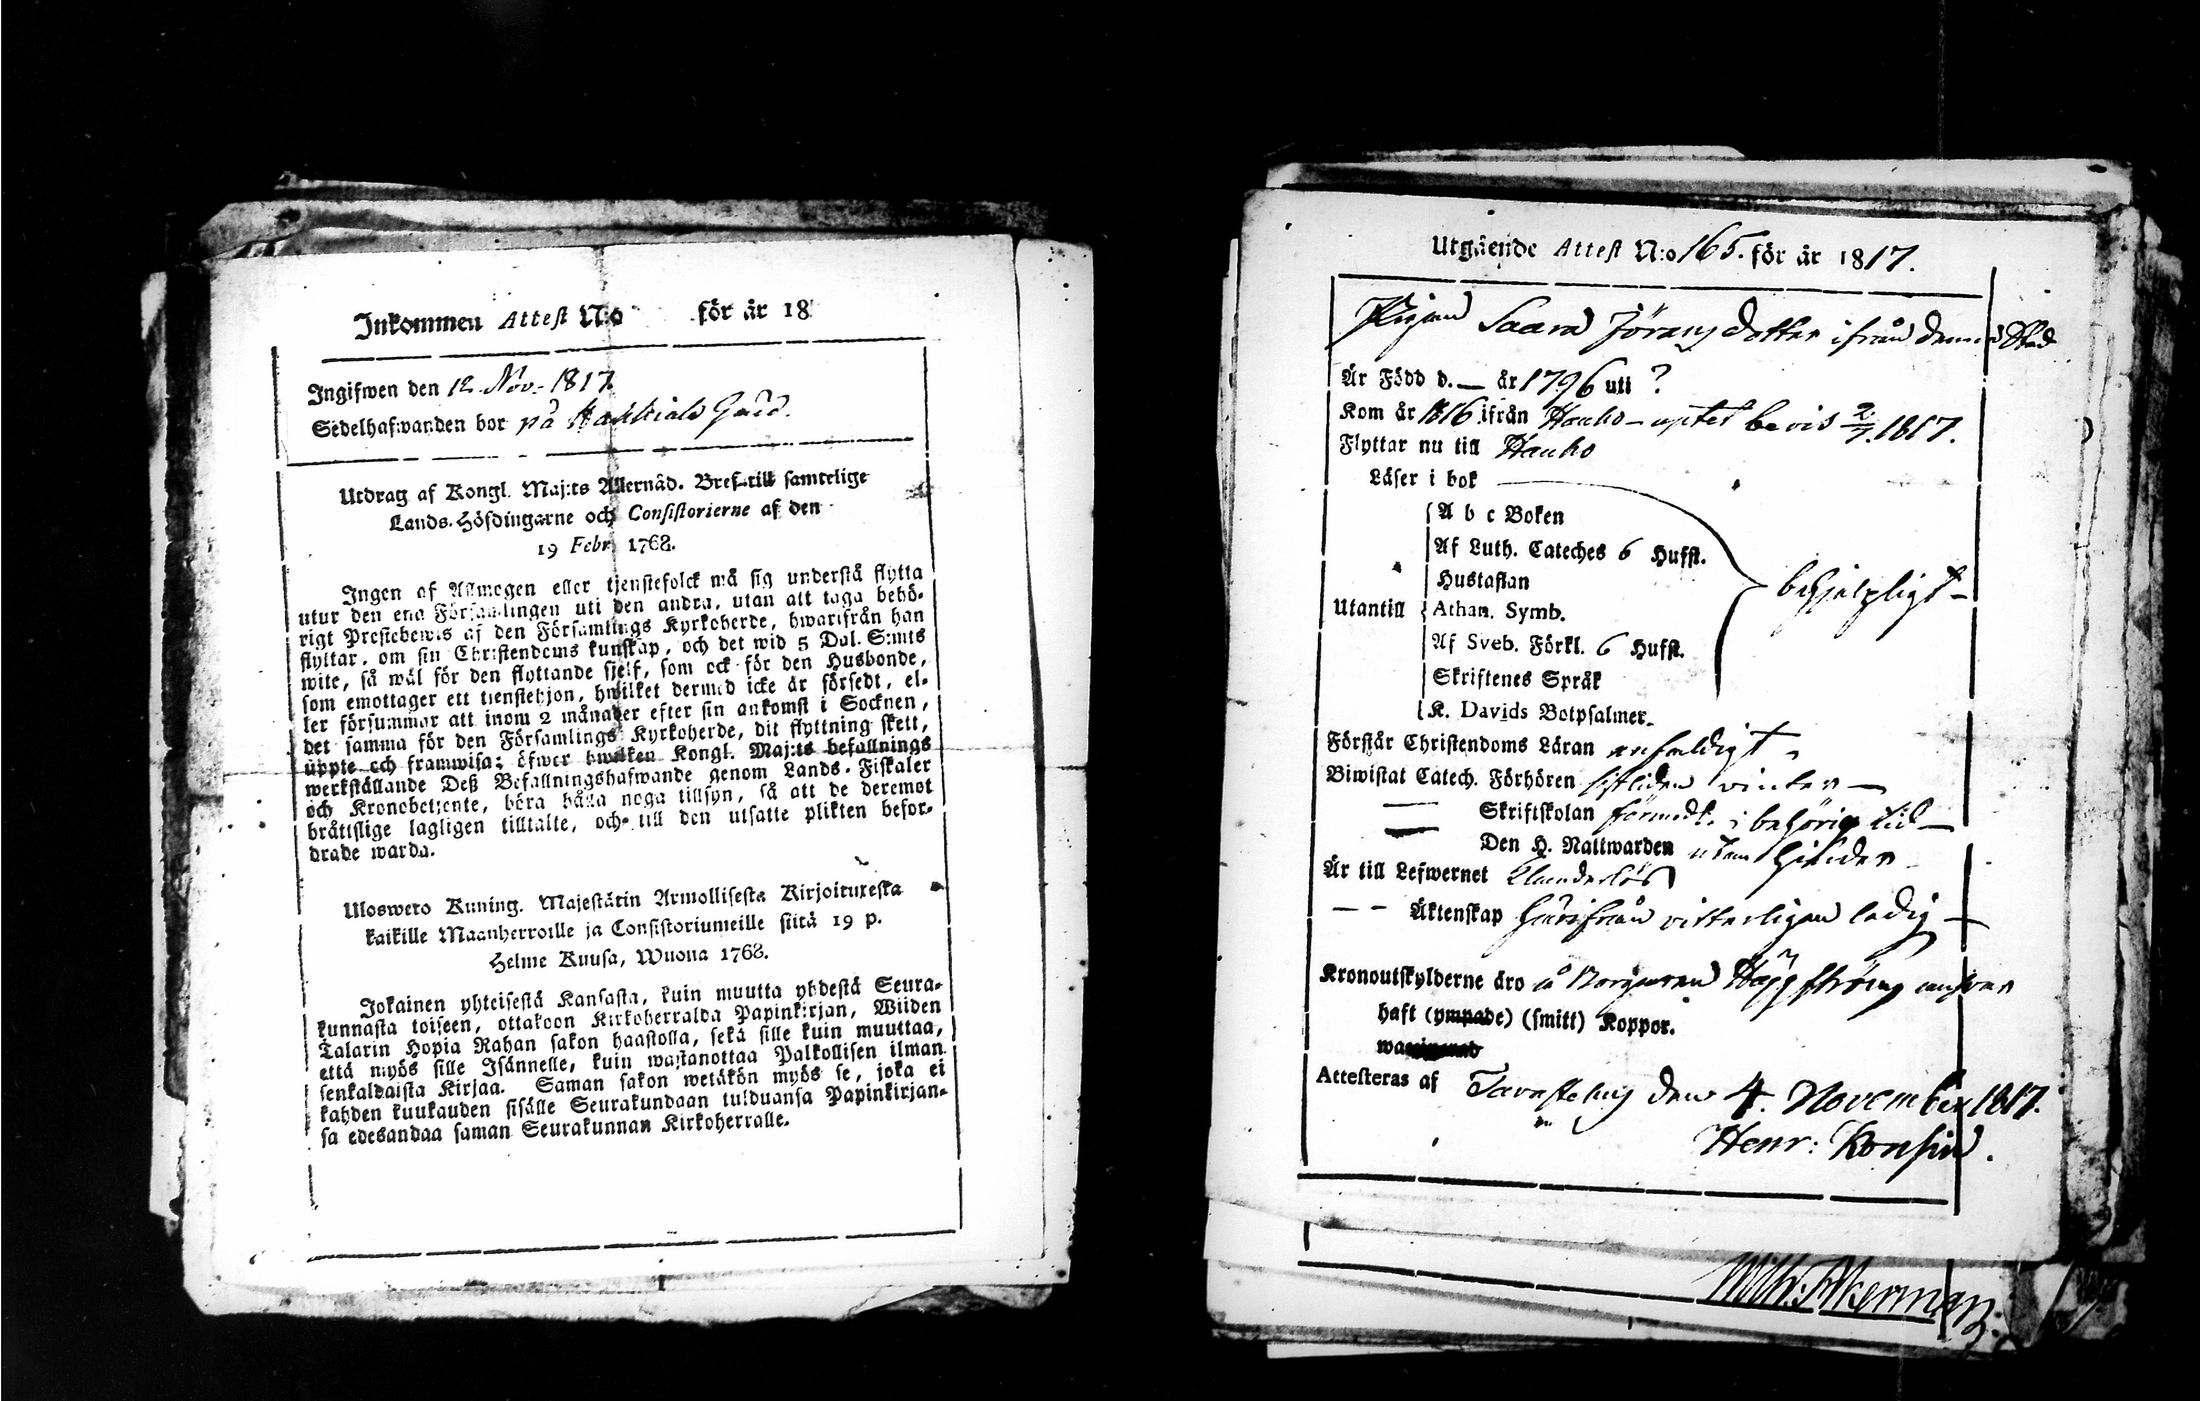 Inkommen Attest N:o för år 18
Ingifwen den 12. Nov. 1817.
Sedelhafwanden bor på Gård.
Utdrag af Kongl. Maj:ts Allernåd. Bref till samtelige
Lands-Höfdingarne och Consistorierne af den
19 Febr. 1768.
Ingen af Allmogen eller tjenstefolck må sig understå flytta
utur den ena Församlingen uti den andra, utan att taga behö-
rigt Prestebewis af den Församlings Kyrkoherde, hwarifrån han
flyttar, om sin Christendoms kunskap, och det wid 5 Dal. S:mts
wite, så wäl för den flyttande sjelf, som ock för den Husbonde,
som emottager ett tienstehjon, hwilket dermed icke är försedt, el-
ler försummar att inom 2 månader efter sin ankomst i Socknen,
det samma för den Församlings Kyrkoherde, dit flyttning skett,
uppte och framwisa; öfwer hwilken Kongl. Maj:ts befallnings
werkställande Deß Befallningshafwande genom Lands-Fiskaler
och Kronobetjente, böra hålla noga tillsyn, så att de deremot
bråttslige lagligen tilltalte, och till den utsatte plikten befor-
drade warda.
Uloswero Kuning. Majestätin Armollisesta Kirjoituxesta
kaikille Maanherroille ja Consistoriumeille siitä 19 p.
Helme Kuusa, Wuona 1768.
Jokainen yhteisestä Kansasta, kuin muutta yhdestä Seura-
kunnasta toiseen, ottakoon Kirkoherralda Papinkirjan, Wiiden
Talarin Hopia Rahan sakon haastolla, sekä sille kuin muuttaa,
että myös sille Isännelle, kuin wastanottaa Palkollisen ilman
senkaldaista Kirjaa. Saman sakon wetäkön myös se, joka ei
kahden kuukauden sisälle Seurakundaan tulduansa Papinkirjan-
sa edesandaa saman Seurakunnan Kirkoherralle.
Utgående Attest N:o 165. för år 1817.
Pigan Saara Jörans dotter ifrån denna Stad
Är Född d. — år 1796 uti ?
Kom år 1816 ifrån Hauho - uptet bevis 2/7. 1817.
Flyttar nu till Hauho
Läser i bok
A b c Boken
Af Luth. Cateches 6 Hufst.
Hustaflan
Utantill Athan. Symb.
Af Sveb. Förkl. 6 Hufst.
Skriftenes Språk
K. Davids Botpsalmer.
behjelpligt —
Förstår Christendoms Läran enfaldigt
Biwistat Catech. Förhören sistliden vinter —
— Skriftskolan i behörig tid —
— Den H. Nattwarden utom hinder
Är till Lefwernet Klanderlös
— — Äktenskap härifrån vitterligen ledig —
Kronoutskylderne äro å Borgaren Häggströms ansvar
haft (ympade) (smitt) Koppor.
Attesteras af Tavastehus den 4. November 1817.
Henr: Konsin.
Wilh: Åkerman